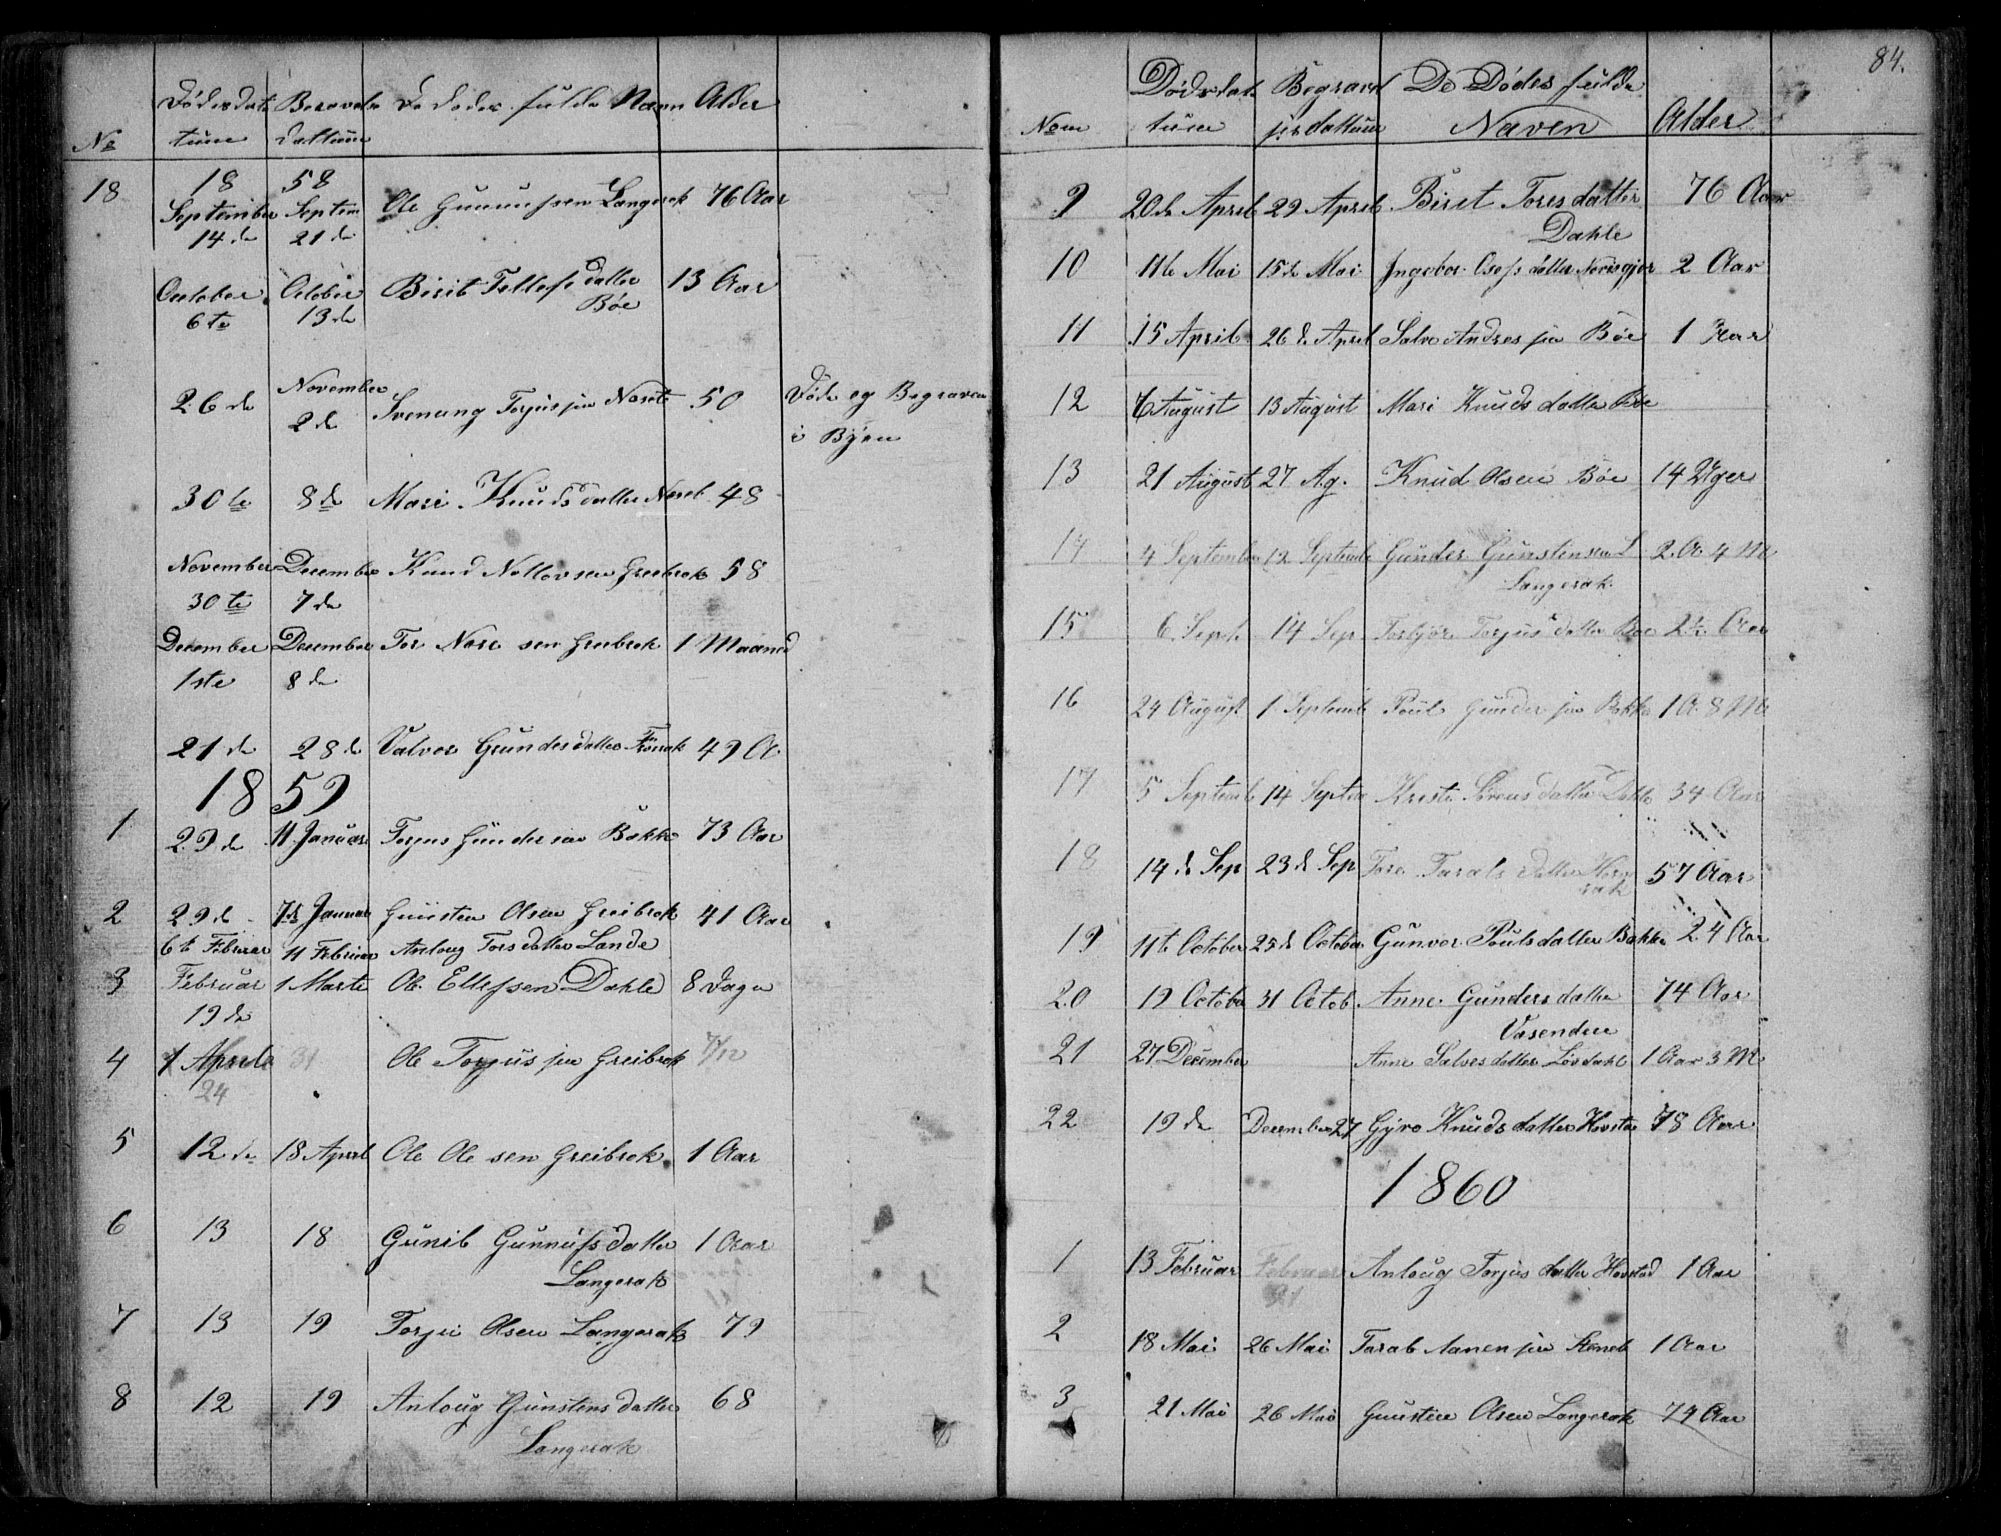 Dødsdat Begravels De Dødes fulde Navn Alder
No tum Dattum
18 18 58
September Septem Ole Gunnufsen Langerak 76 Aar
14 de 21 de
October October Birit Tellefs datter 13 Aar
6te 13 de Bøe
26 de November Svenung Torjussen 50 Døde og Begraven
2 de i Byen
30te 8de Mari Knudsdatter 48
November December Knud Nottovsen Greibrok 58
30te 7 de
December December Tor sen Greibrok 1 Maaned
1ste 8 de
21 de 28 de Valvor Gundersdatter 49 A
18 59
1 29 de 11 Januar Torjus Gundersen Bakke 73 Aar
2 29 de 7de Januar Gunsten Olsen Greibrok 41 Aar
6te Februar 11 Februar Anlaug Torsdatter Lande
3 Februar 1 Marts Ole Ellefsen Dahle 8 Dage
19 de
4 1 April 31 Ole Torjussen Greibrok 7/12
24
5 12 de 18 April Ole Olesen Greibrok 1 Aar
6 13 18 Gunil Gunnufsdatter 1 Aar
Langerak
7 13 19 Torjui Olsen Langerak 79
8 12 19 Anloug Gunstensdatter 68
Langerak
84.
Dødsdat Begravel De Dødes fulde
Nom tum ses dattum Naven Alder
9 20de April 29 April Biret Toresdatter 76 Aar
Dahle
10 11te Mai 15de Mai Ingebor Osofsdatter 2 Aar
11 15 April 26de April Salve Andressen Bøe 1 Aar
12 6 August 13 August Mari Knudsdatter Bøe
13 21 August 27 Ag. Knud Olsen Bøe 14 Uger
14 4 September 12 Septemb Gunder Gunstensen L 2 A 4 M
Langerak
15 6 Sept. 14 Sep Torbjør Torjusdatter Bøe 2 1/2 Aar
16 24 August 1 Septemb Poul Gundersen Bakke 1 A 8 M
17 5 Septemb 14 Septem Kristi Sørensdatter Dahle 34 Aar
18 14 de Sep 23 de Sep Tore Taralsdatter 57 Aar
19 11te October 25de October Gunvor Poulsdatter Bakke 24 Aar
20 19 October 31 Octob. Anne Gundersdatter 74 Aar
Vasenden
21 27 December Anne Salvesdatter Løvdahl 1 Aar 3 M
22 19 de December 27 Gyro Knudsdatter Hovstad 78 Aar
1860
1 13 Februar Februar Anloug Torjusdatter Hovstad 1 Aar
21
2 18 Mai 26 Mai Taral Aanensen 1 Aar
3 21 Mai 26 Mai Gunsten Olsen Langerak 74 Aar